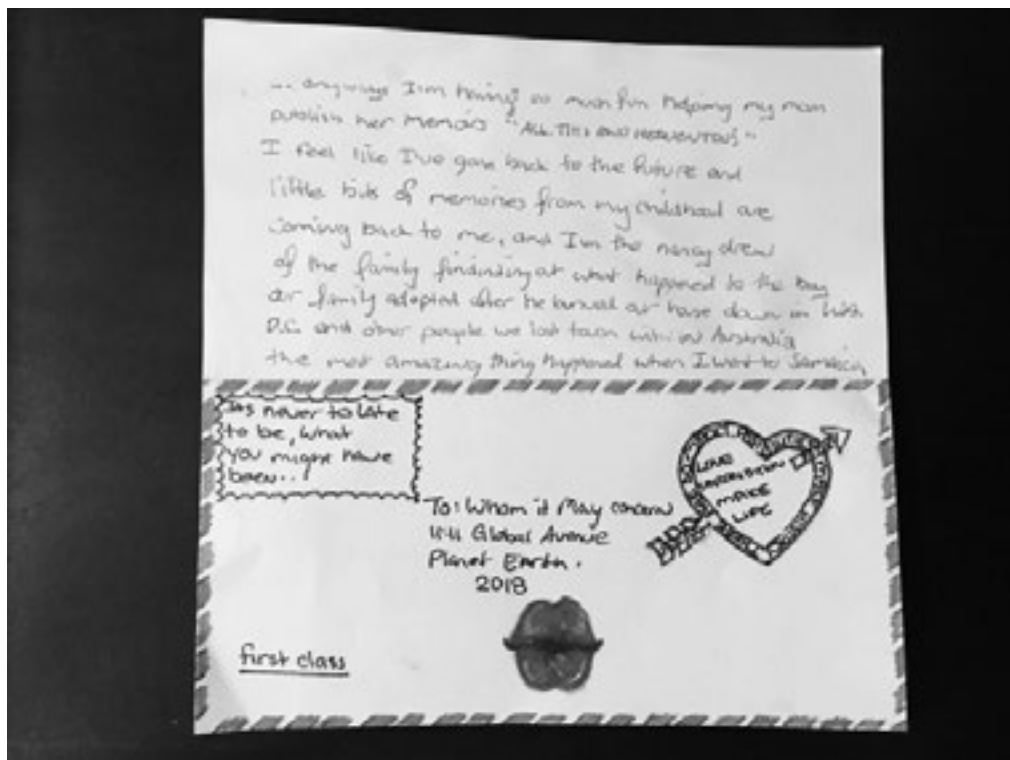 ... anyways I'm having so much fun helping my mom
publish her memoirs "ALL THIS AND
I feel like I've gone back to the future and
little bits of memories from my childhood are
coming back to me, and I'm the nancy drew
of the family what happened to the boy
our family adopted after he burned our house down in
D.C. and other people we lost touch with in Australia
the most amazing thing happened when I went to Jamaica,
Its never to late
to be, what
you might have
been..
LOVE
MAKE
LIFE
To: Whom it May concern
11:11 Global Avenue
Planet Earth.
2018
first class